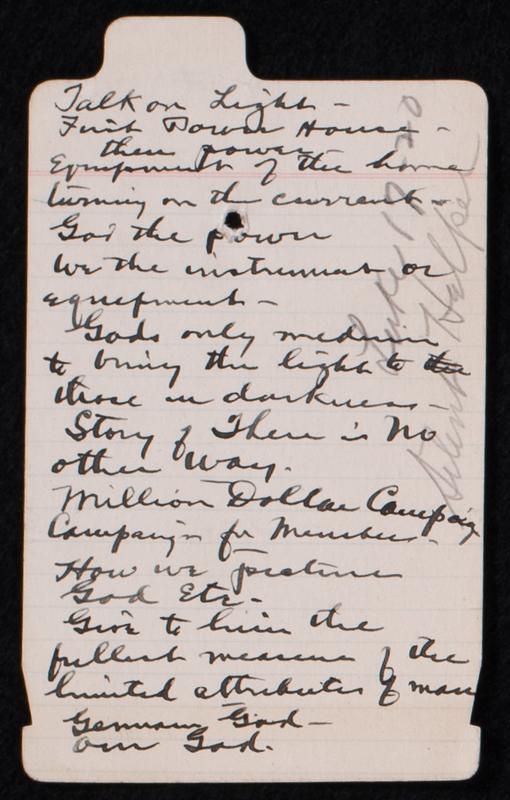 Talk on Light -
First Power House -
then power
Equipment of the home
turning on the current -
God the power
We the instrument or
equipment -
Gods only medium
to bring the light to the
those in darkness -
Story of There is No
other Way.
Million Dollar Campaign
Campaign for Members -
How we picture
God Etc -
Give to him the
fullest measure of the
limited attributes of man
Germany God -
our God.
Luke 17-20
Silent Helper